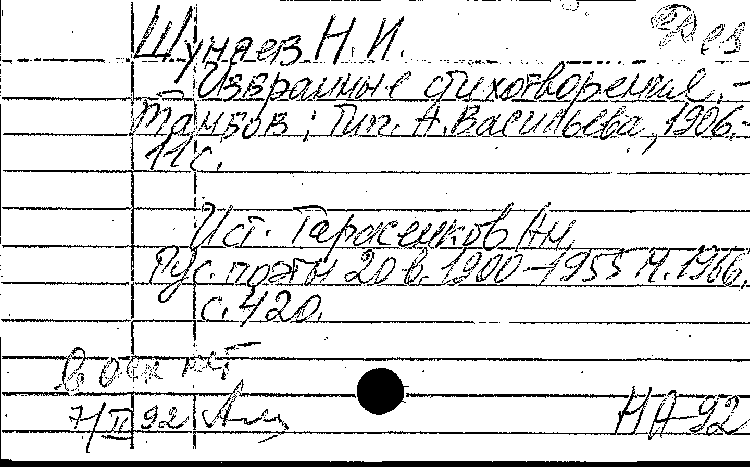 Рез
Шунаев Н. И.
Избранные стихотворения. -
Тамбов: Тип. А. Васильева, 1906. -
11 с.
Ист. Тарасенков Ан.
Рус. поэты 20 в. 1900-1955 М. 1966.
с. 420.
в осн нет
7/II 92
НА-92